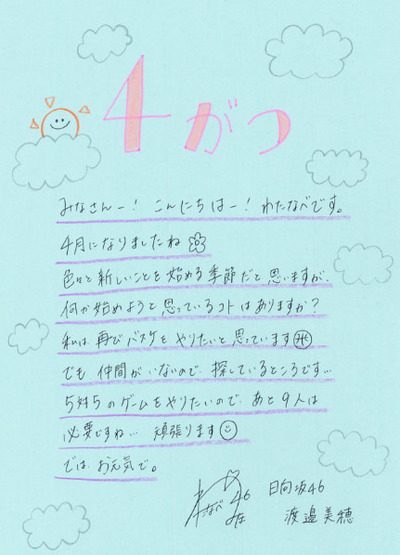 4がつ
みなさんー! こんにちはー! わたなべです。
4月になりましたね
色々と新しいことを始める季節だと思いますが、
何か始めようと思っているコトはありますか?
私は再びバスケをやりたいと思っています
でも仲間がいないので、探しているところです…
5対5のゲームをやりたいので、あと9人は
必要ですね… 頑張ります
では、お元気で。
日向坂46
渡邉美穂